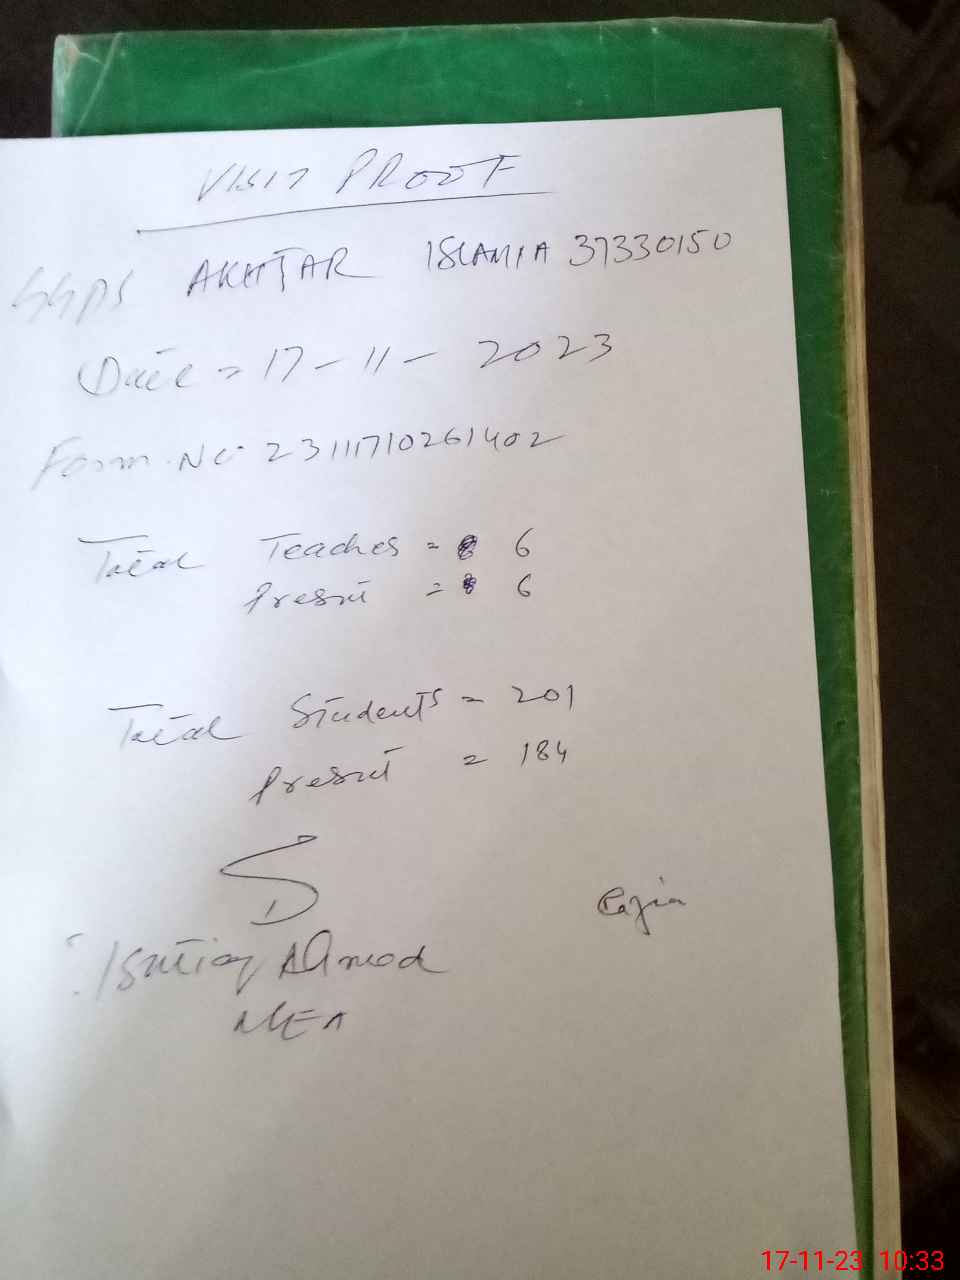 VISIT PROOF
GGPS AKHTAR ISLAMIA 37330150
Date = 17-11-2023
Form No. 23111710261402
Total Teaches = 6
Present = 6
Total Students = 201
Present = 184
Razia
Ishtiaq Ahmad
MEA
17-11-23 10:33